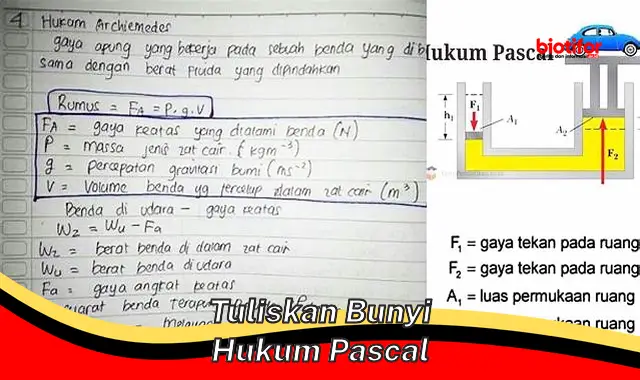 4 Hukum Archiemedes
gaya apung yang bekerja pada sebuah benda yang di
sama dengan berat fluida yang dipindahkan
Rumus = FA = P. g. V
FA = gaya keatas yang dialami benda (N)
P = massa jenis zat cair (kgm⁻³)
g = Percepatan gravitasi bumi (ms⁻²)
V = Volume benda yg tercelup dalam zat cair (m³)
Benda di udara – gaya keatas
Wz = Wu – Fa
Wz = berat benda di dalam zat cair
Wu = berat benda di udara
Fa = gaya angkat keatas
benda Terapu
Hukum Pascal
F₁
h₁
A₁
A₂
F₂
F₁ = gaya tekan pada ruang
F₂ = gaya tekan pada ruang
A₁ = luas permukaan ruang
ruang
Tuliskan Bunyi
Hukum Pascal